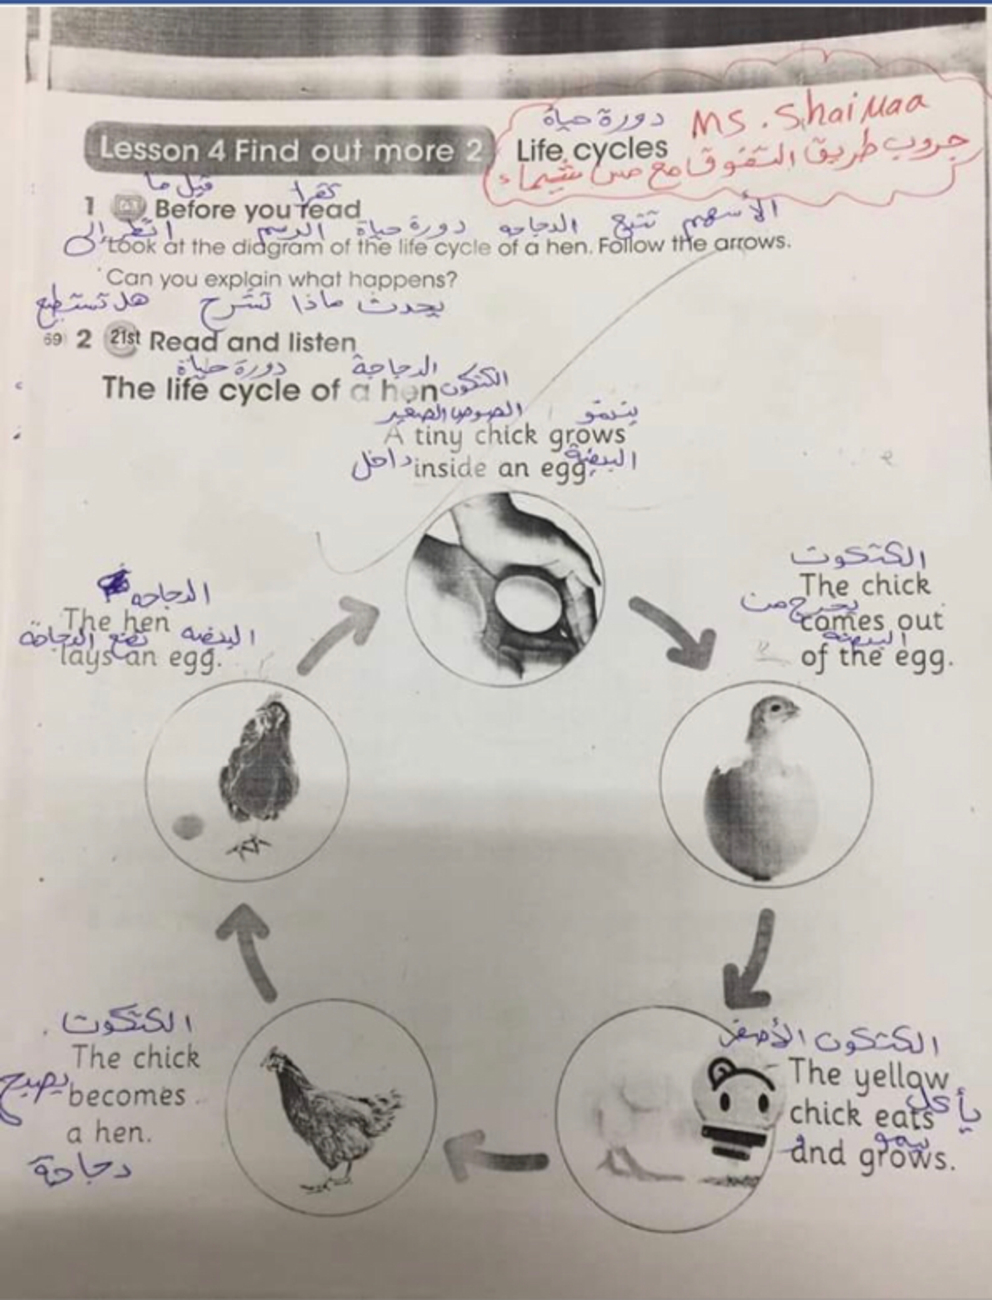 دورة حياة Ms. Shaimaa
Lesson 4 Find out more 2 Life cycles
جروب طريق التفوق مع مس شيماء
قبل ما تقرأ
1 Before you read
انظر إلى الرسم دورة حياة الدجاجه تتبع الأسهم
Look at the diagram of the life cycle of a hen. Follow the arrows.
Can you explain what happens?
هل تستطيع تشرح ماذا يحدث
69 2 21st Read and listen
دورة حياة الدجاجة
The life cycle of a hen
الكتكوت
الصوص الصغير ينمو
A tiny chick grows
inside an egg.
داخل البيضة
الكتكوت
The chick
يخرج من
comes out
البيضة
of the egg.
الدجاجه
The hen
البيضه تضع الدجاجة
lays an egg.
الكتكوت الأصفر
The yellow
chick eats
يأكل
ينمو
and grows.
الكتكوت
The chick
becomes
يصبح
a hen.
دجاجة